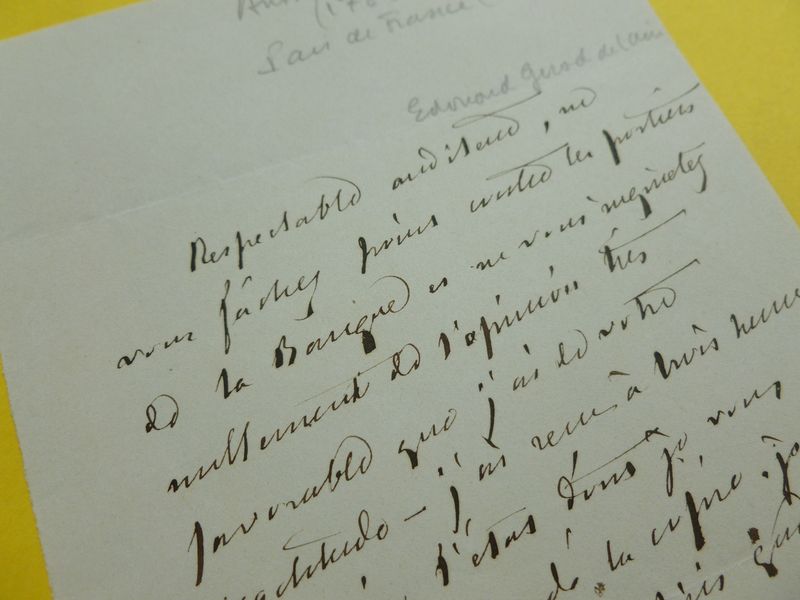 Pair de France
Edouard Girod de l'ain
Respectable auditeur, ne
vous fâchez point contre les portiers
de la Banque et ne vous inquietez
nullement de l'opinion très
favorable que j'ai de votre
exactitude – j'ai reçu à trois heures
l'état dont je vous
la copie. je